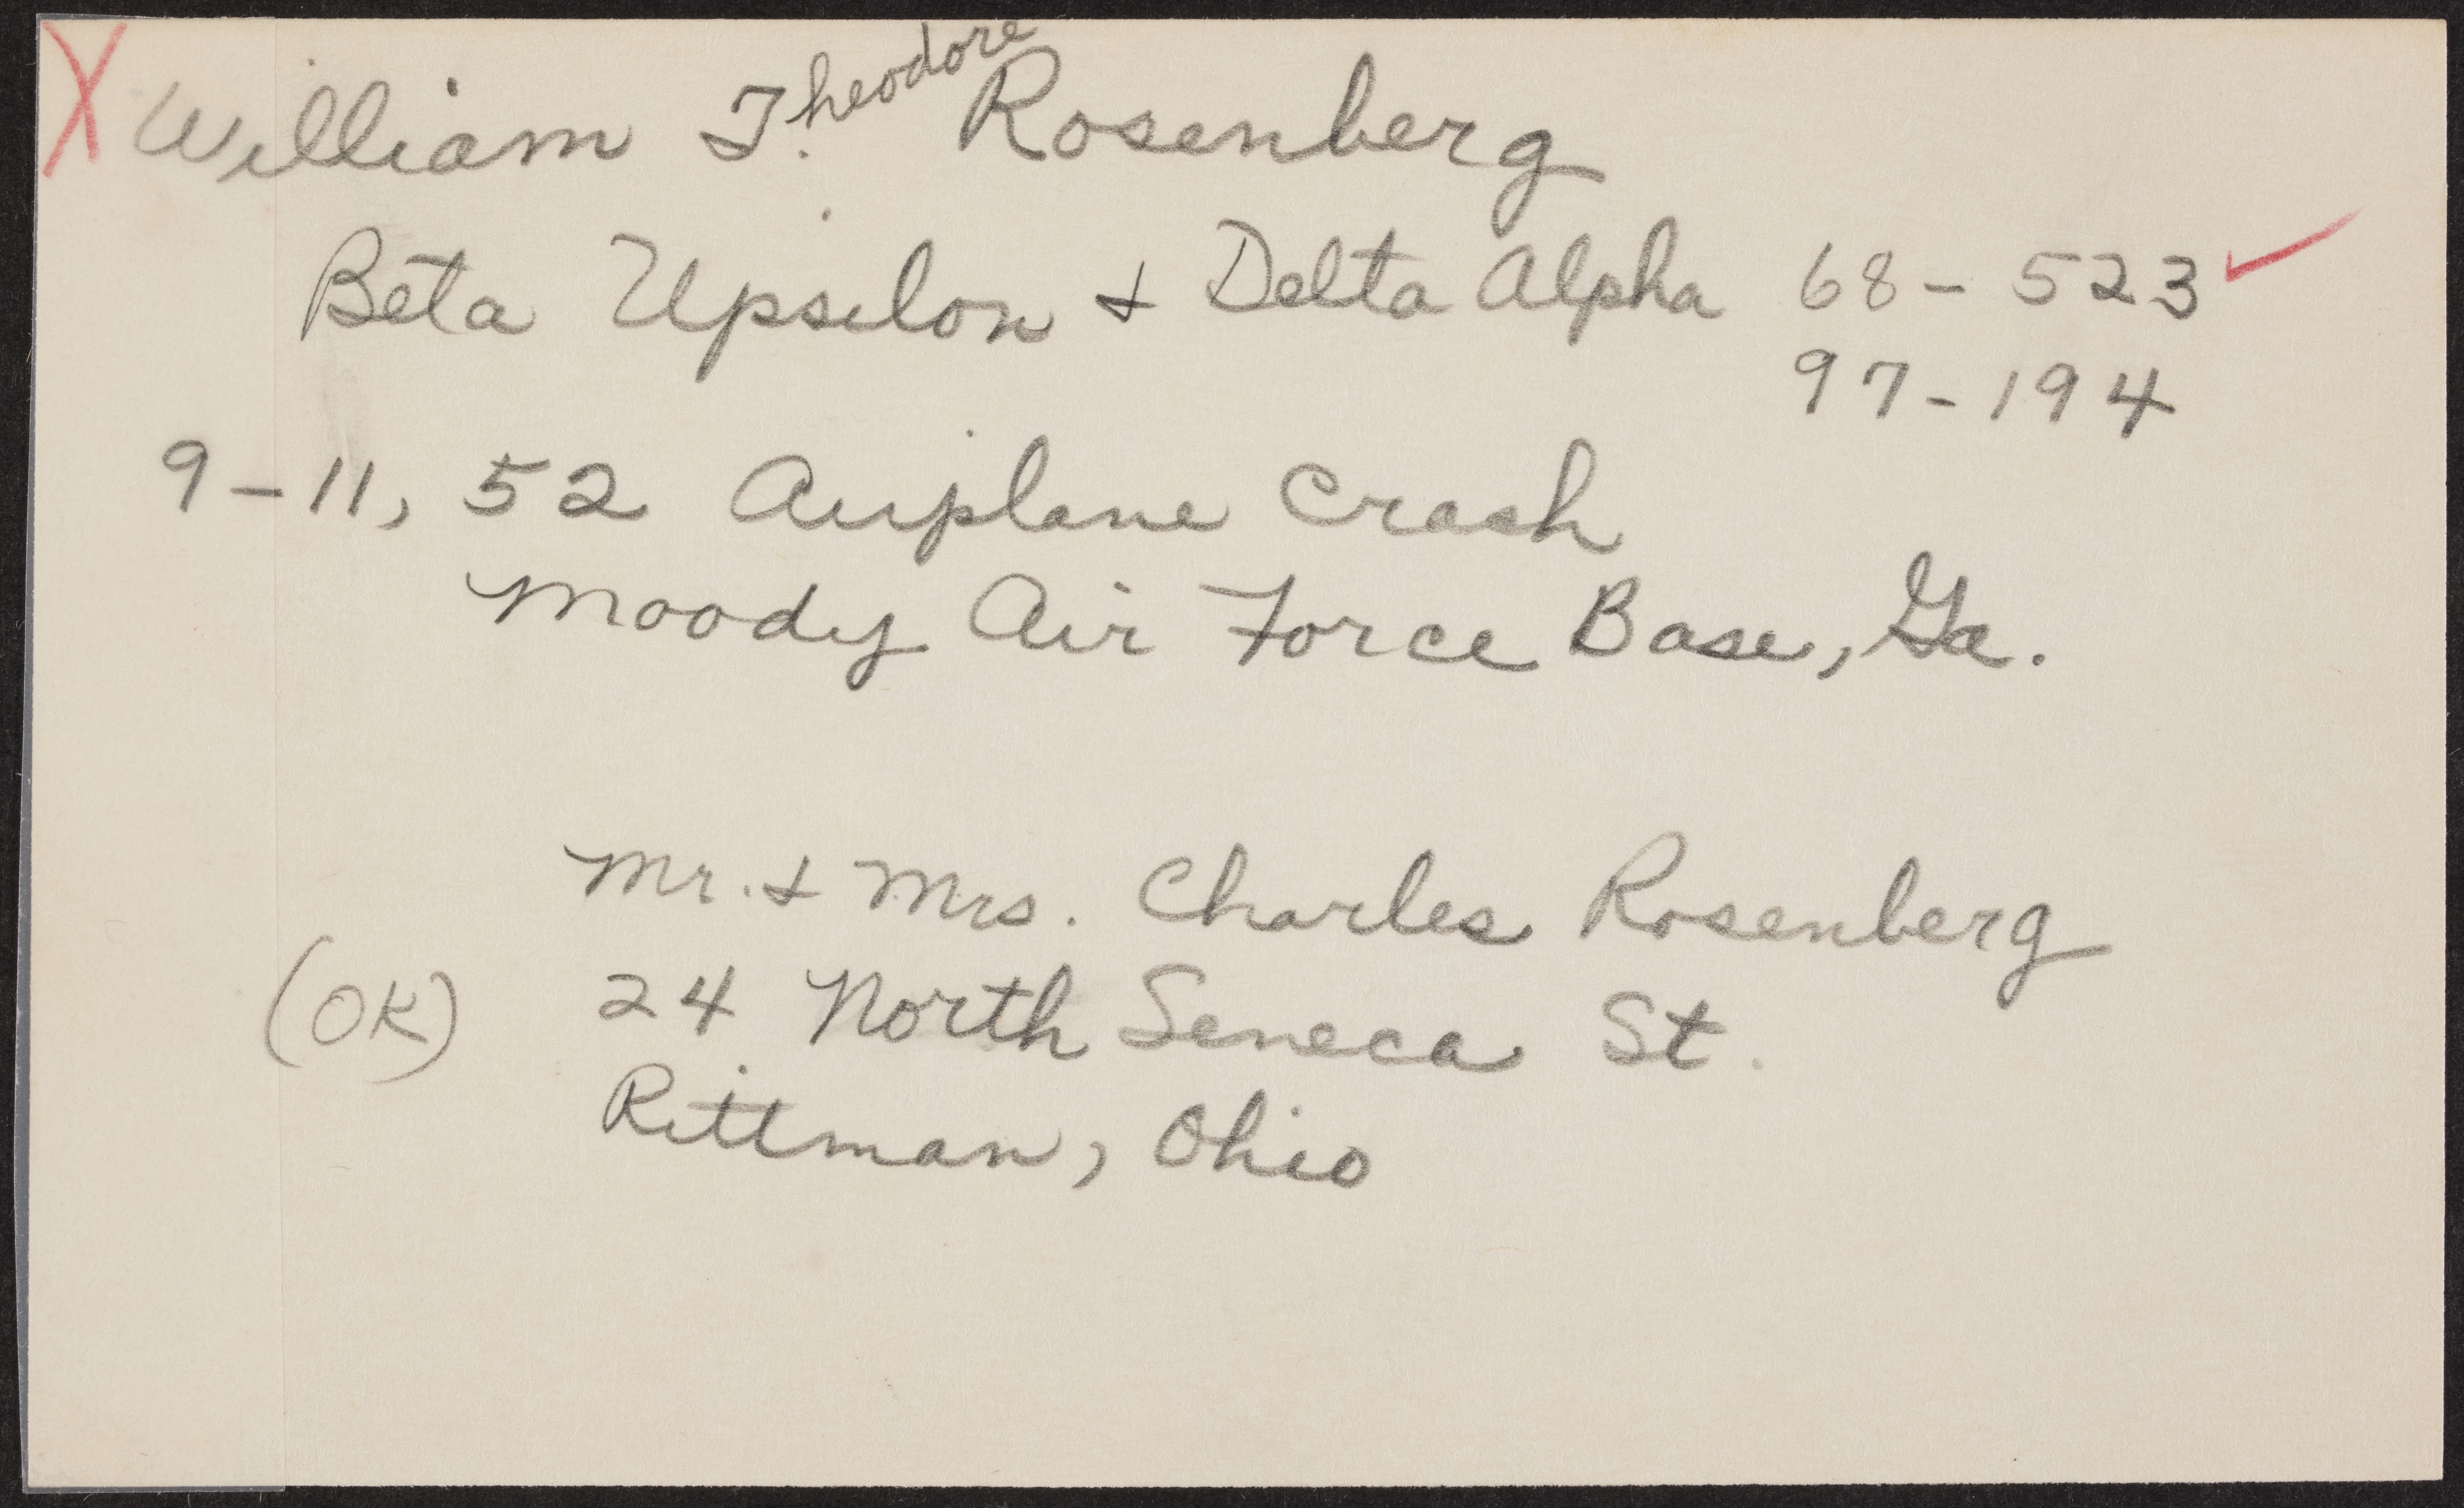 X William T.heodore Rosenberg
Beta Upsilon & Delta Alpha 68-523 ✓
97-194
9-11, 52 Airplane Crash
Moody Air Force Base, Ga.
Mr. & Mrs. Charles Rosenberg
(OK) 24 North Seneca St.
Rittman, Ohio